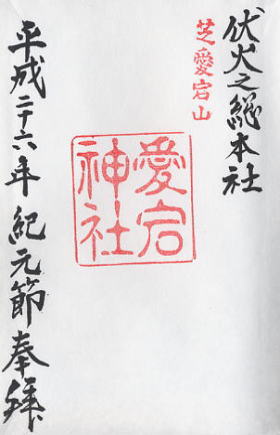 伏火之総本社
芝愛宕山
愛宕
神社
平成二十六年 紀元節 奉拝